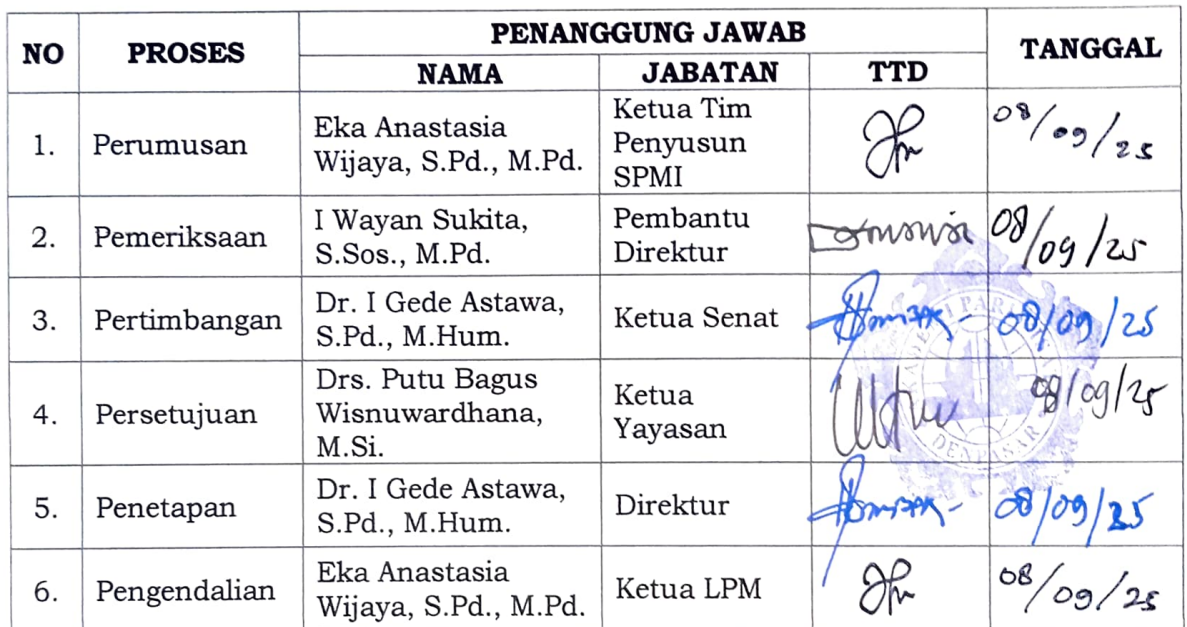 NO PROSES PENANGGUNG JAWAB TANGGAL
NAMA JABATAN TTD
1. Perumusan Eka Anastasia Wijaya, S.Pd., M.Pd. Ketua Tim Penyusun SPMI 08/09/25
2. Pemeriksaan I Wayan Sukita, S.Sos., M.Pd. Pembantu Direktur 08/09/25
3. Pertimbangan Dr. I Gede Astawa, S.Pd., M.Hum. Ketua Senat 08/09/25
4. Persetujuan Drs. Putu Bagus Wisnuwardhana, M.Si. Ketua Yayasan 08/09/25
5. Penetapan Dr. I Gede Astawa, S.Pd., M.Hum. Direktur 08/09/25
6. Pengendalian Eka Anastasia Wijaya, S.Pd., M.Pd. Ketua LPM 08/09/25
DENPASAR